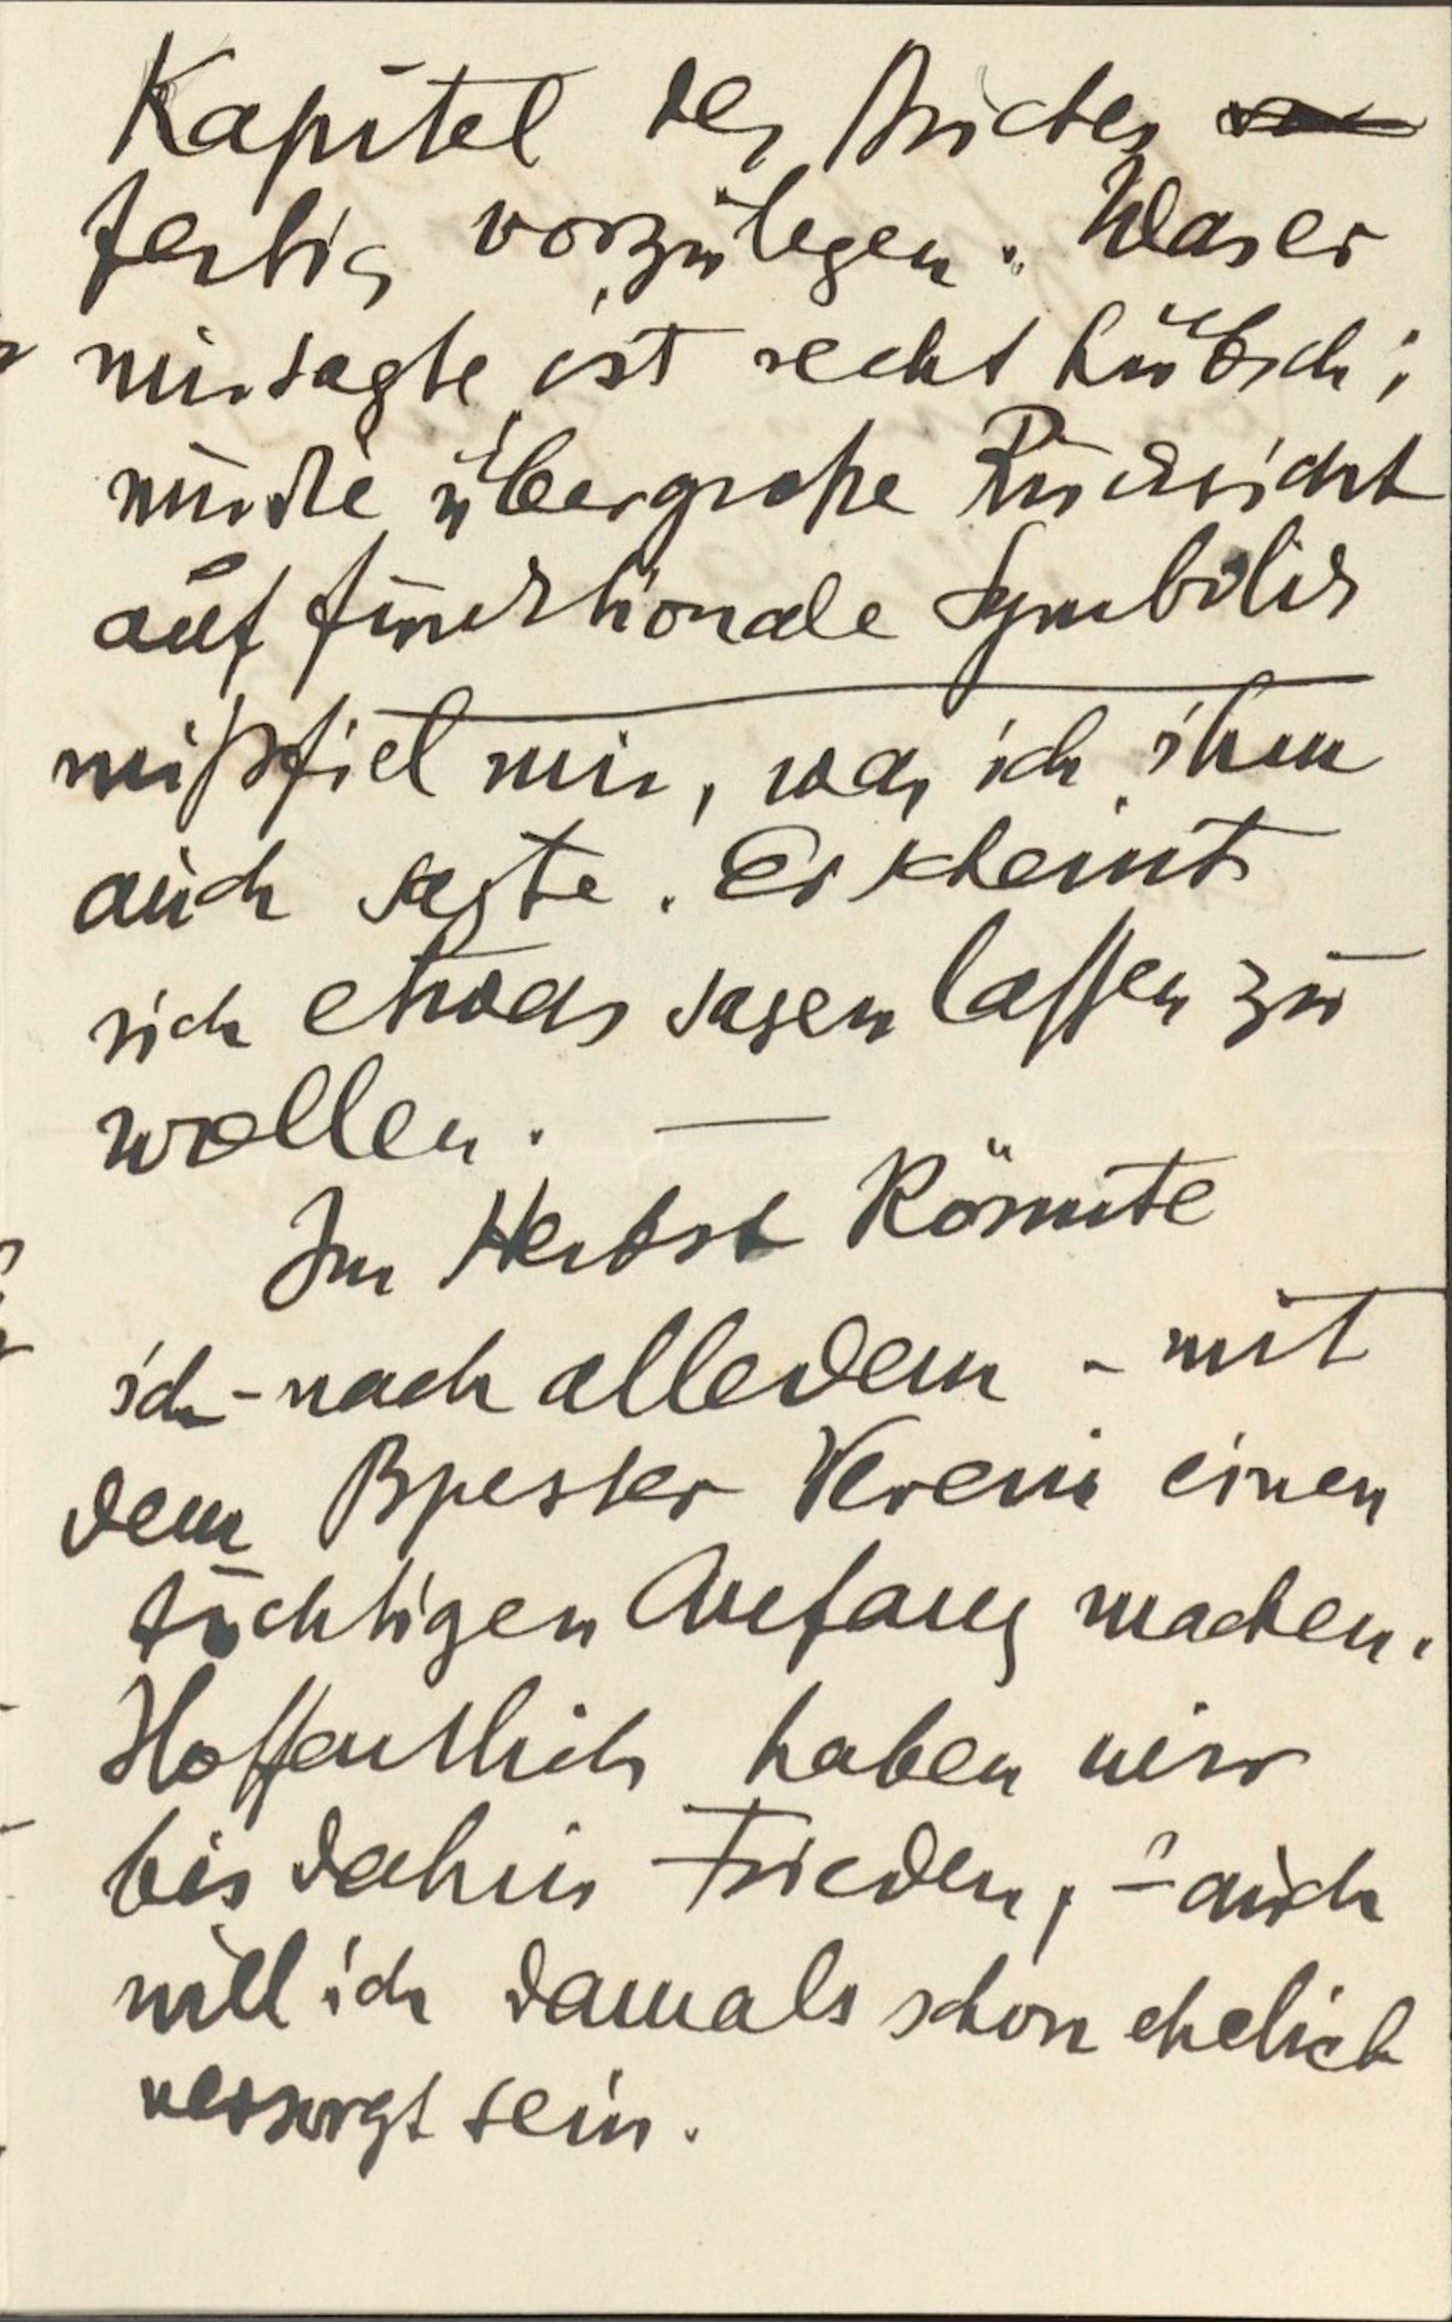 Kapitel des Buches
fertig vorzulegen. Was er
mir sagte, ist recht hübsch;
nur die übergroße Rücksicht
auf funktionale Symbolik
mißfiel mir, was ich ihm
auch sagte. Er scheint
sich etwas sagen lassen zu
wollen. —
Im Herbst könnte
ich - nach alledem - mit
dem Bpester Verein einen
tüchtigen Anfang machen.
Hoffentlich haben wir
bis dahin Frieden, - auch
will ich damals schon ehelich
versorgt sein.